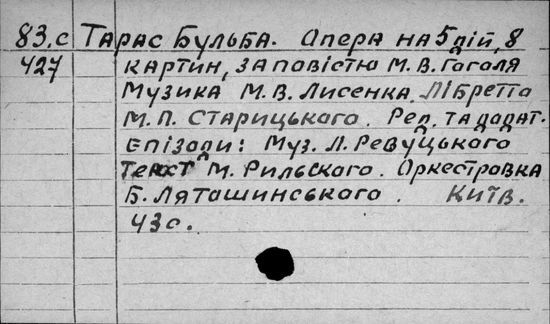 83.с Тарас Бульба. Опера на 5 дій, 8
427 картин, за повістю М.В. Гоголя
Музика М.В. Лисенка. Лібретто
М.П. Старицького. Ред. та додат.
епізоди: Муз. Л. Ревуцького
Текст М. Рильского. Оркестровка
Б. Лятошинського. Київ.
43с.